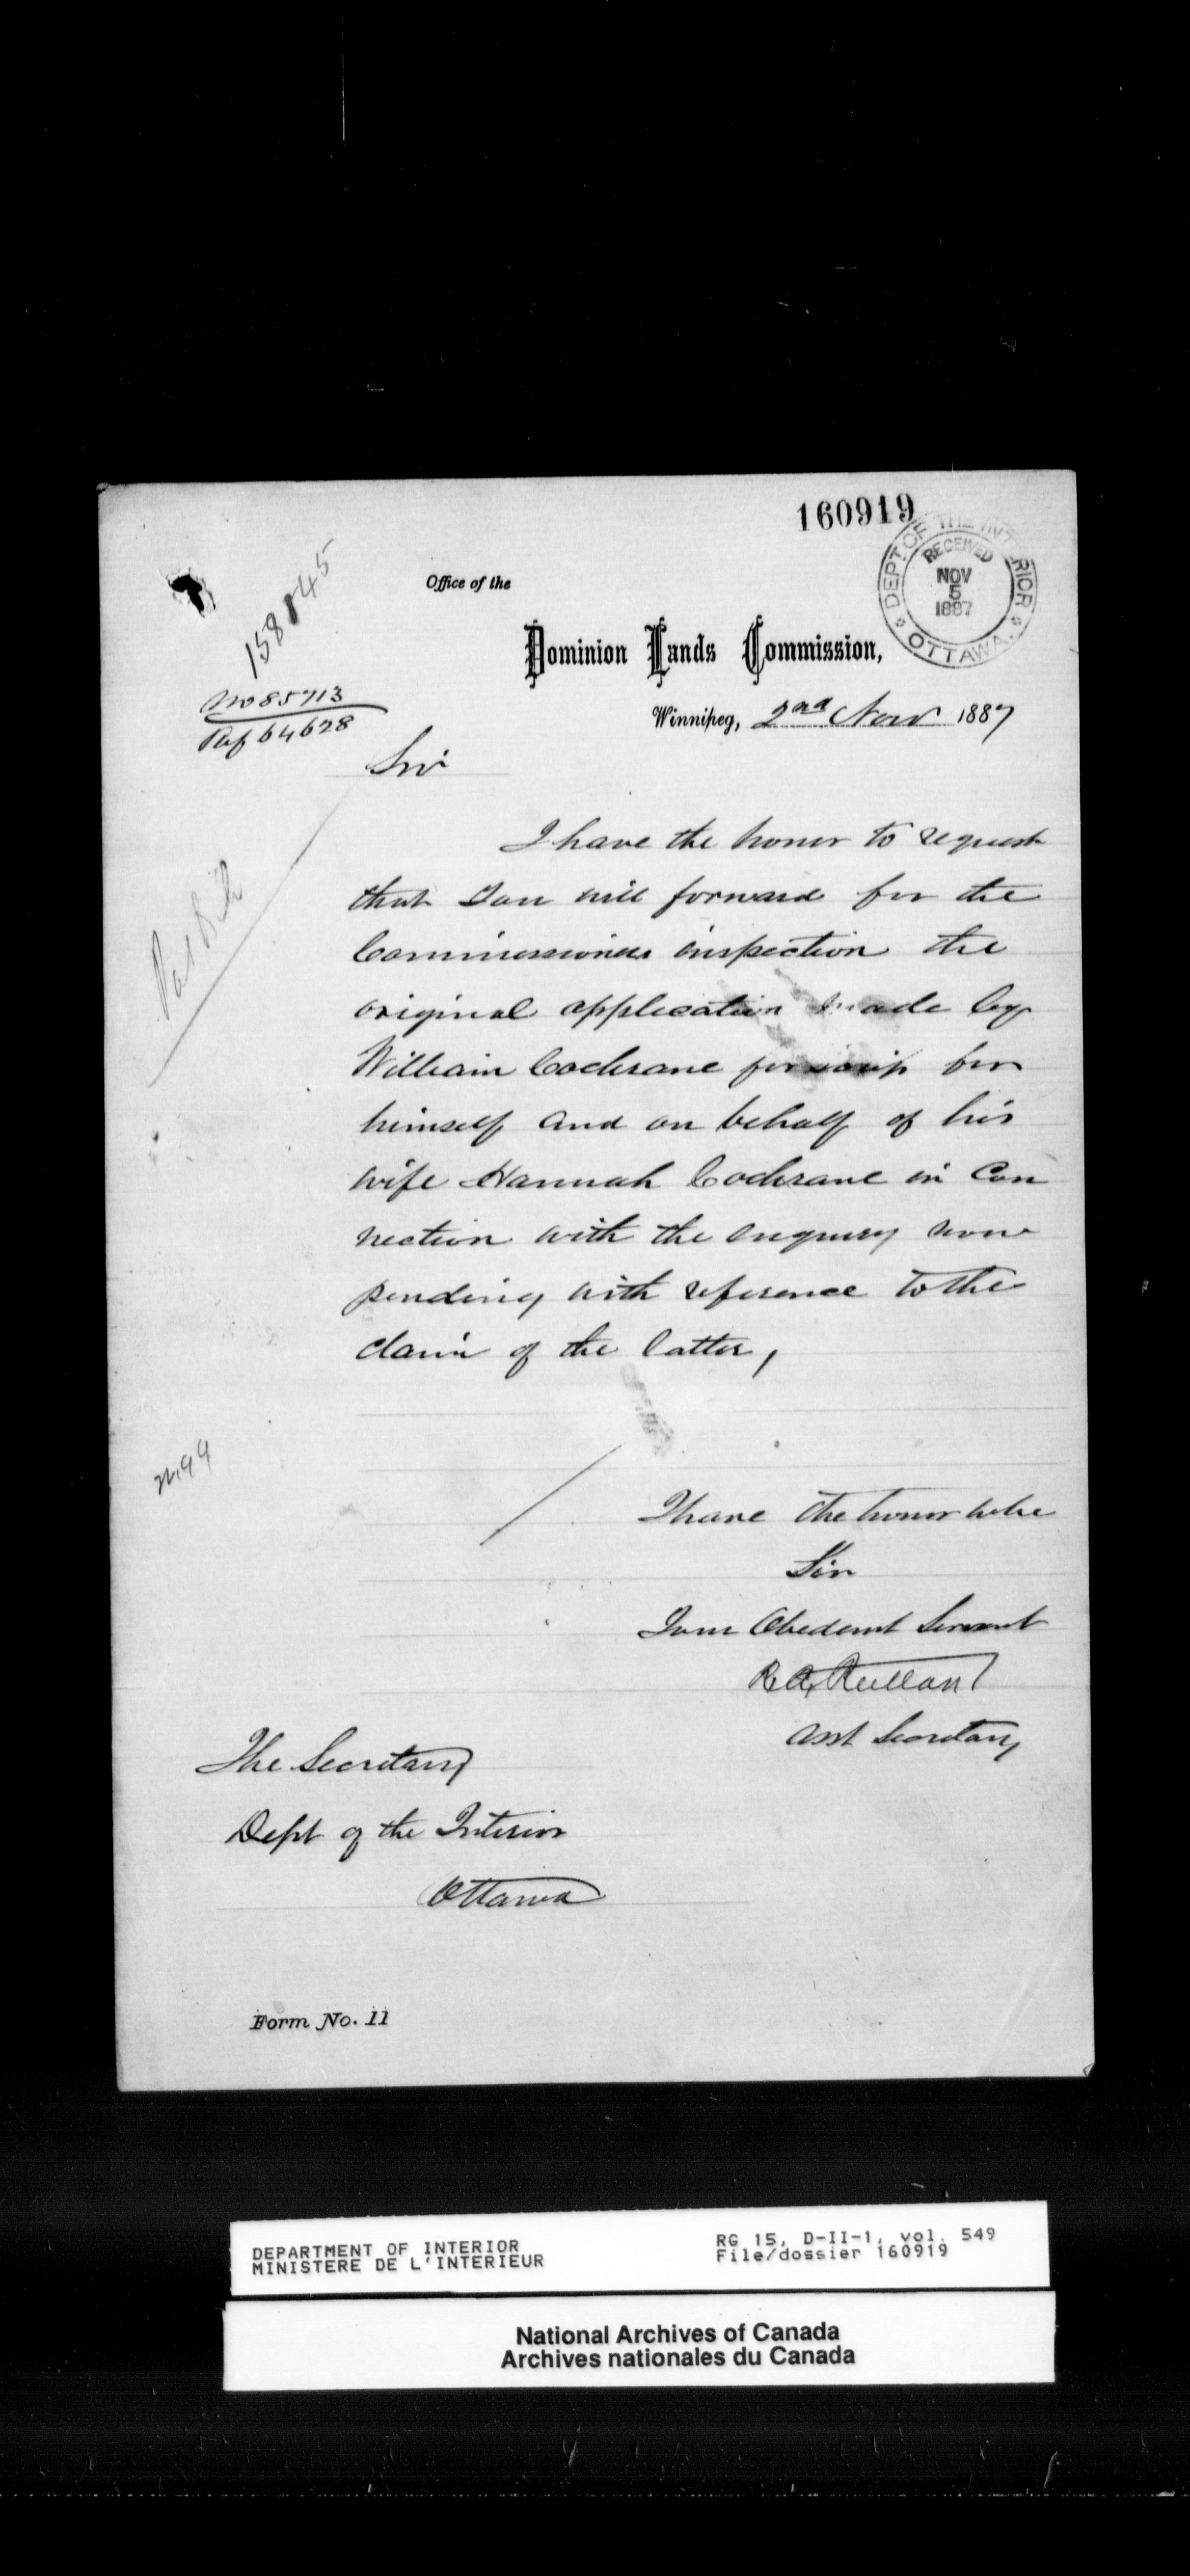 160919
DEPT. OF THE INTERIOR
RECEIVED
NOV
5
1887
OTTAWA.
158145
Office of the
Dominion Lands Commission,
No 85713
Ref 64628
Winnipeg, 2nd Nov 1887
Sir
I have the honor to request
that you will forward for the
Commissioners inspection the
original application made by
William Cochrane for scrip for
himself and on behalf of his
wife Hannah Cochrane in Con
nection with the enquiry now
pending with reference to the
claim of the latter,
I have the honor to be
Sir
Your Obedient Servant
R. A. Ruttan
Asst Secretary
The Secretary
Dept of the Interior
Ottawa
Form No. 11
DEPARTMENT OF INTERIOR
MINISTERE DE L'INTERIEUR
RG 15, D-II-1, vol. 549
File/dossier 160919
National Archives of Canada
Archives nationales du Canada